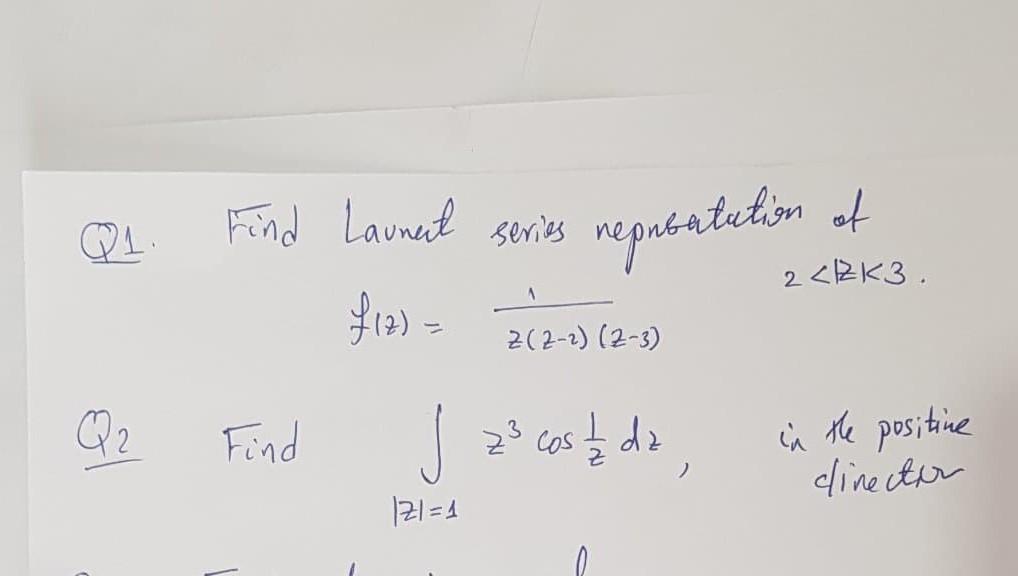 Q1. Find Laurent series reprsentation of
f(z) = 1 / z(z-2)(z-3) 2<|z|<3.
Q2 Find ∫ z³ cos 1/z dz, in the positive
|z|=1 direction